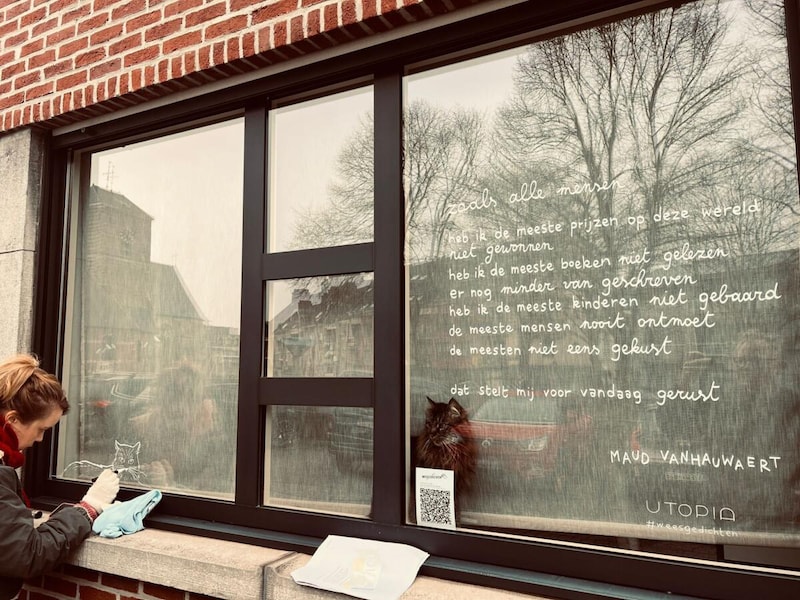 zoals alle mensen
heb ik de meeste prijzen op deze wereld
niet gewonnen
heb ik de meeste boeken niet gelezen
er nog minder van geschreven
heb ik de meeste kinderen niet gebaard
de meeste mensen nooit ontmoet
de meesten niet eens gekust
dat stelt mij voor vandaag gerust
MAUD VANHAUWAERT
UTOPIA
#weesgedichten